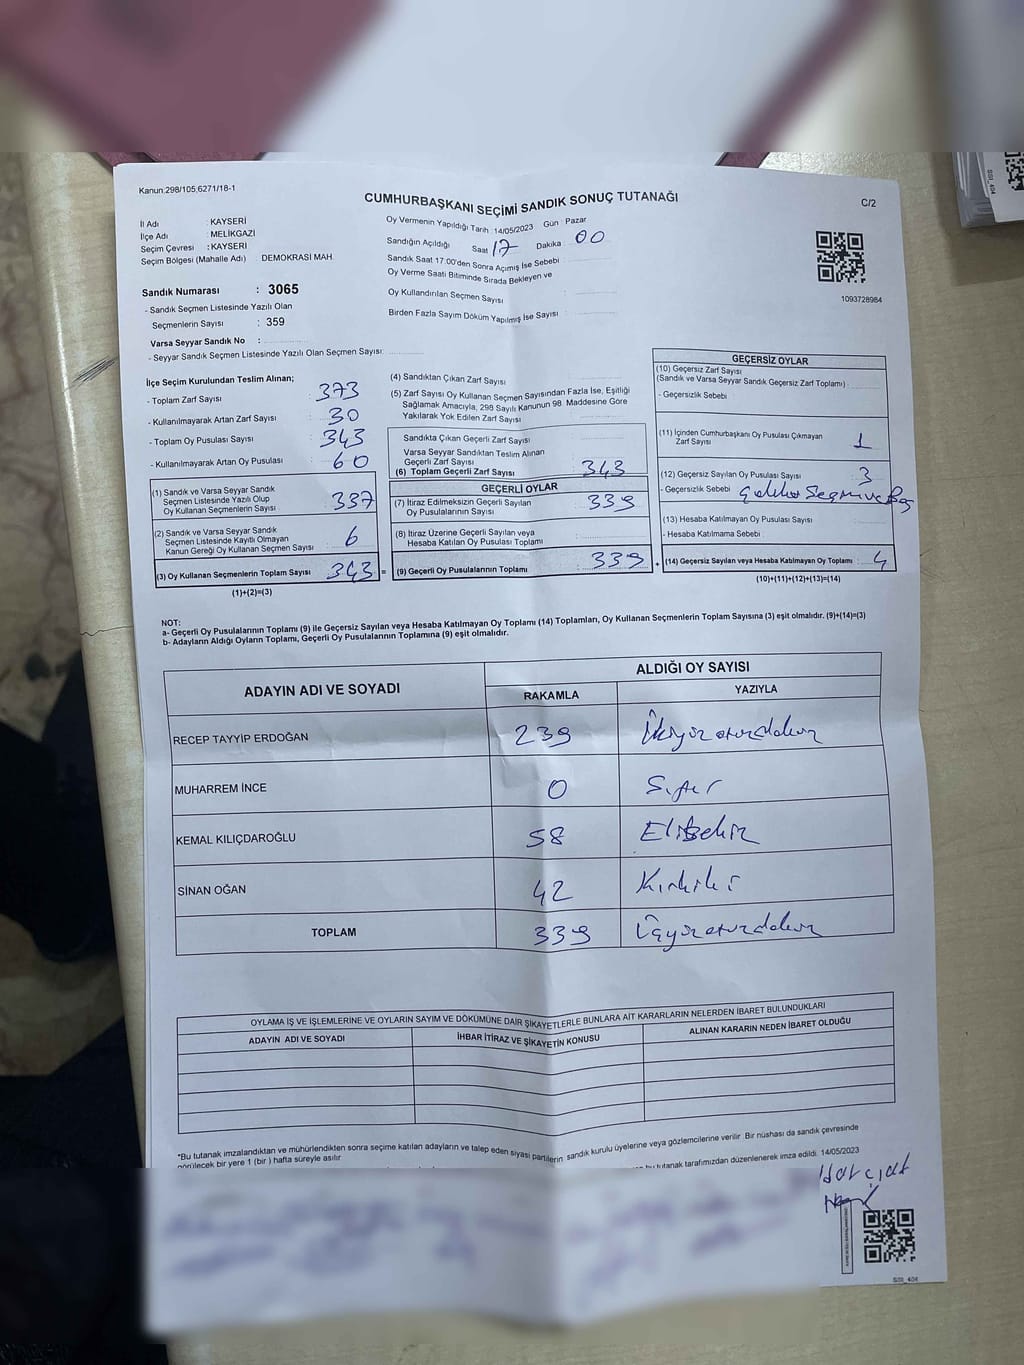 Kanun:298/105,6271/18-1
CUMHURBAŞKANI SEÇİMİ SANDIK SONUÇ TUTANAĞI
C/2
İl Adı : KAYSERİ
İlçe Adı : MELİKGAZİ
Seçim Çevresi : KAYSERİ
Seçim Bölgesi (Mahalle Adı) DEMOKRASİ MAH.
Oy Vermenin Yapıldığı Tarih 14/05/2023 Gün : Pazar
Sandığın Açıldığı Saat 17 Dakika : 00
Sandık Saat 17.00'den Sonra Açımış İse Sebebi :
Oy Verme Saati Bitiminde Sırada Bekleyen ve
Oy Kullandırılan Seçmen Sayısı
Birden Fazla Sayım Döküm Yapılmış İse Sayısı :
1093728984
Sandık Numarası : 3065
- Sandık Seçmen Listesinde Yazılı Olan
Seçmenlerin Sayısı : 359
Varsa Seyyar Sandık No :
- Seyyar Sandık Seçmen Listesinde Yazılı Olan Seçmen Sayısı:
İlçe Seçim Kurulundan Teslim Alınan;
- Toplam Zarf Sayısı : 373
- Kullanılmayarak Artan Zarf Sayısı : 30
- Toplam Oy Pusulası Sayısı : 343
- Kullanılmayarak Artan Oy Pusulası : 60
(1) Sandık ve Varsa Seyyar Sandık
Seçmen Listesinde Yazılı Olup
Oy Kullanan Seçmenlerin Sayısı : 337
(2) Sandık ve Varsa Seyyar Sandık
Seçmen Listesinde Kayıtlı Olmayan
Kanun Gereği Oy Kullanan Seçmen Sayısı : 6
(3) Oy Kullanan Seçmenlerin Toplam Sayısı : 343 =
(1)+(2)=(3)
(4) Sandıktan Çıkan Zarf Sayısı :
(5) Zarf Sayısı Oy Kullanan Seçmen Sayısından Fazla İse, Eşitliği
Sağlamak Amacıyla, 298 Sayılı Kanunun 98. Maddesine Göre
Yakılarak Yok Edilen Zarf Sayısı :
Sandıkta Çıkan Geçerli Zarf Sayısı :
Varsa Seyyar Sandıktan Teslim Alınan
Geçerli Zarf Sayısı :
(6) Toplam Geçerli Zarf Sayısı : 343
GEÇERLİ OYLAR
(7) İtiraz Edilmeksizin Geçerli Sayılan
Oy Pusulalarının Sayısı : 339
(8) İtiraz Üzerine Geçerli Sayılan veya
Hesaba Katılan Oy Pusulası Toplamı :
(9) Geçerli Oy Pusulalarının Toplamı : 339 +
GEÇERSİZ OYLAR
(10) Geçersiz Zarf Sayısı
(Sandık ve Varsa Seyyar Sandık Geçersiz Zarf Toplamı) :
- Geçersizlik Sebebi :
(11) İçinden Cumhurbaşkanı Oy Pusulası Çıkmayan
Zarf Sayısı : 1
(12) Geçersiz Sayılan Oy Pusulası Sayısı : 3
- Geçersizlik Sebebi :
(13) Hesaba Katılmayan Oy Pusulası Sayısı :
- Hesaba Katılmama Sebebi :
(14) Geçersiz Sayılan veya Hesaba Katılmayan Oy Toplamı : 4
(10)+(11)+(12)+(13)=(14)
NOT:
a- Geçerli Oy Pusulalarının Toplamı (9) ile Geçersiz Sayılan veya Hesaba Katılmayan Oy Toplamı (14) Toplamları, Oy Kullanan Seçmenlerin Toplam Sayısına (3) eşit olmalıdır. (9)+(14)=(3)
b- Adayların Aldığı Oyların Toplamı, Geçerli Oy Pusulalarının Toplamına (9) eşit olmalıdır.
ADAYIN ADI VE SOYADI
ALDIĞI OY SAYISI
RAKAMLA YAZIYLA
RECEP TAYYİP ERDOĞAN 239 İkiyüzotuzdokuz
MUHARREM İNCE 0 Sıfır
KEMAL KILIÇDAROĞLU 58 Ellisekiz
SİNAN OĞAN 42 Kırkiki
TOPLAM 339 Üçyüzotuzdokuz
OYLAMA İŞ VE İŞLEMLERİNE VE OYLARIN SAYIM VE DÖKÜMÜNE DAİR ŞİKAYETLERLE BUNLARA AİT KARARLARIN NELERDEN İBARET BULUNDUKLARI
ADAYIN ADI VE SOYADI İHBAR İTİRAZ VE ŞİKAYETİN KONUSU ALINAN KARARIN NEDEN İBARET OLDUĞU
*Bu tutanak imzalandıktan ve mühürlendikten sonra seçime katılan adayların ve talep eden siyasi partilerin, sandık kurulu üyelerine veya gözlemcilerine verilir. Bir nüshası da sandık çevresinde
görülecek bir yere 1 (bir) hafta süreyle asılır. bu tutanak tarafımızdan düzenlenerek imza edildi. 14/05/2023
SSI_404